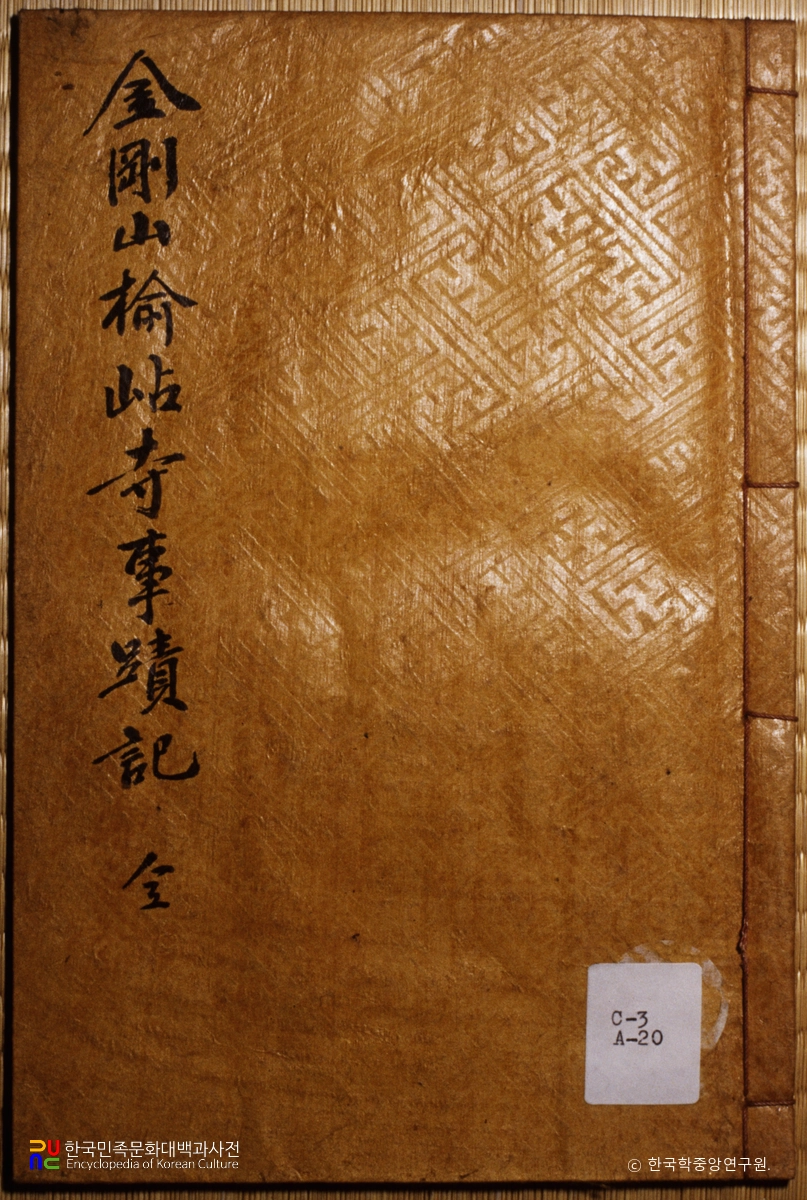 金剛山楡岾寺事蹟記 全
C-3
A-20
한국민족문화대백과사전
Encyclopedia of Korean Culture
ⓒ 한국학중앙연구원.